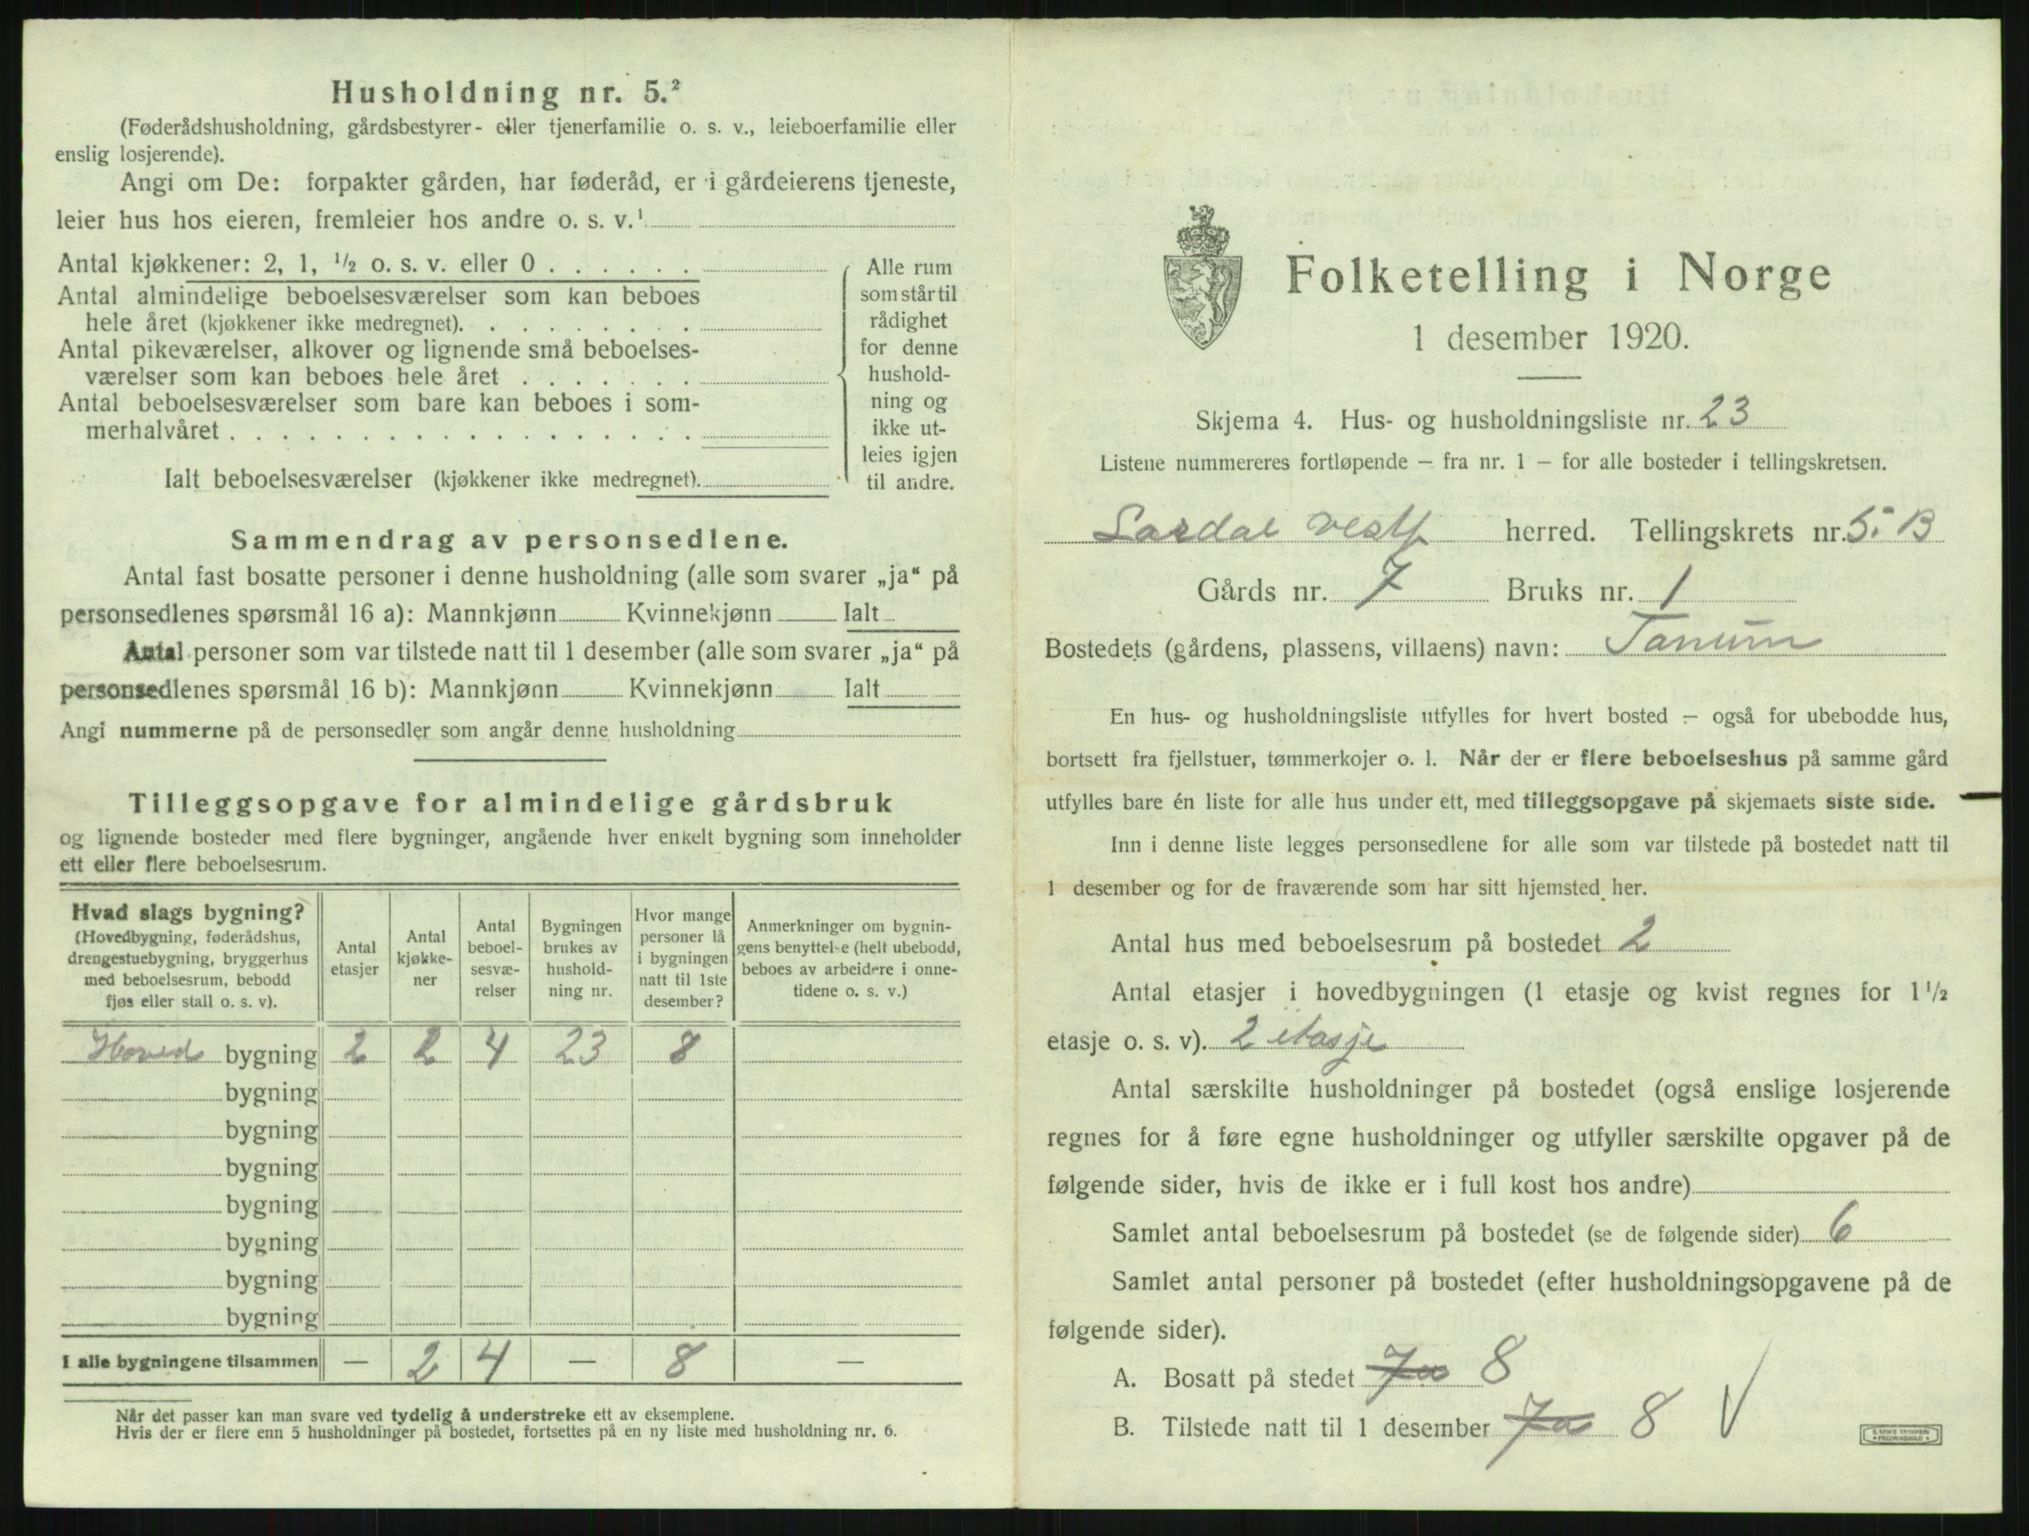 Husholdning nr. 5.²
(Føderådshusholdning, gårdsbestyrer- eller tjenerfamilie o. s. v., leieboerfamilie eller
enslig losjerende).
Angi om De: forpakter gården, har føderåd, er i gårdeierens tjeneste,
leier hus hos eieren, fremleier hos andre o. s. v.¹
Antal kjøkkener: 2, 1, ½ o. s. v. eller 0 . . . . . .
Antal almindelige beboelsesværelser som kan beboes
hele året (kjøkkener ikke medregnet). . . . . . . . .
Antal pikeværelser, alkover og lignende små beboelses-
værelser som kan beboes hele året . . . . . . .
Antal beboelsesværelser som bare kan beboes i som-
merhalvåret . . . . . . . . . . . . . . . . . .
Ialt beboelsesværelser (kjøkkener ikke medregnet).
Alle rum
som står til
rådighet
for denne
hushold-
ning og
ikke ut-
leies igjen
til andre.
Sammendrag av personsedlene.
Antal fast bosatte personer i denne husholdning (alle som svarer „ja“ på
personsedlenes spørsmål 16 a): Mannkjønn Kvinnekjønn Ialt
Antal personer som var tilstede natt til 1 desember (alle som svarer „ja“ på
personsedlenes spørsmål 16 b): Mannkjønn Kvinnekjønn Ialt
Angi nummerne på de personsedler som angår denne husholdning
Tilleggsopgave for almindelige gårdsbruk
og lignende bosteder med flere bygninger, angående hver enkelt bygning som inneholder
ett eller flere beboelsesrum.
Hvad slags bygning?
(Hovedbygning, føderådshus,
drengestuebygning, bryggerhus
med beboelsesrum, bebodd
fjøs eller stall o. s. v).
Antal
etasjer
Antal
kjøkke-
ner
Antal
beboel-
sesvæ-
relser
Bygningen
brukes av
hushold-
ning nr.
Hvor mange
personer lå
i bygningen
natt til 1ste
desember?
Anmerkninger om bygnin-
gens benyttelse (helt ubebodd,
beboes av arbeidere i onne-
tidene o. s. v.)
Hoved bygning 2 2 4 23 8
bygning
bygning
bygning
bygning
bygning
bygning
bygning
I alle bygningene tilsammen — 2 4 — 8 —
Når det passer kan man svare ved tydelig å understreke ett av eksemplene.
Hvis der er flere enn 5 husholdninger på bostedet, fortsettes på en ny liste med husholdning nr. 6.
Folketelling i Norge
1 desember 1920.
Skjema 4. Hus- og husholdningsliste nr. 23
Listene nummereres fortløpende — fra nr. 1 — for alle bosteder i tellingskretsen.
herred. Tellingskrets nr. 5. B
Gårds nr. 7 Bruks nr. 1
Bostedets (gårdens, plassens, villaens) navn: Tanum
En hus- og husholdningsliste utfylles for hvert bosted — også for ubebodde hus,
bortsett fra fjellstuer, tømmerkojer o. l. Når der er flere beboelseshus på samme gård
utfylles bare én liste for alle hus under ett, med tilleggsopgave på skjemaets siste side.
Inn i denne liste legges personsedlene for alle som var tilstede på bostedet natt til
1 desember og for de fraværende som har sitt hjemsted her.
Antal hus med beboelsesrum på bostedet 2
Antal etasjer i hovedbygningen (1 etasje og kvist regnes for 1½
etasje o. s. v). 2 etasje
Antal særskilte husholdninger på bostedet (også enslige losjerende
regnes for å føre egne husholdninger og utfyller særskilte opgaver på de
følgende sider, hvis de ikke er i full kost hos andre)
Samlet antal beboelsesrum på bostedet (se de følgende sider) 6
Samlet antal personer på bostedet (efter husholdningsopgavene på de
følgende sider).
A. Bosatt på stedet 8
B. Tilstede natt til 1 desember 8